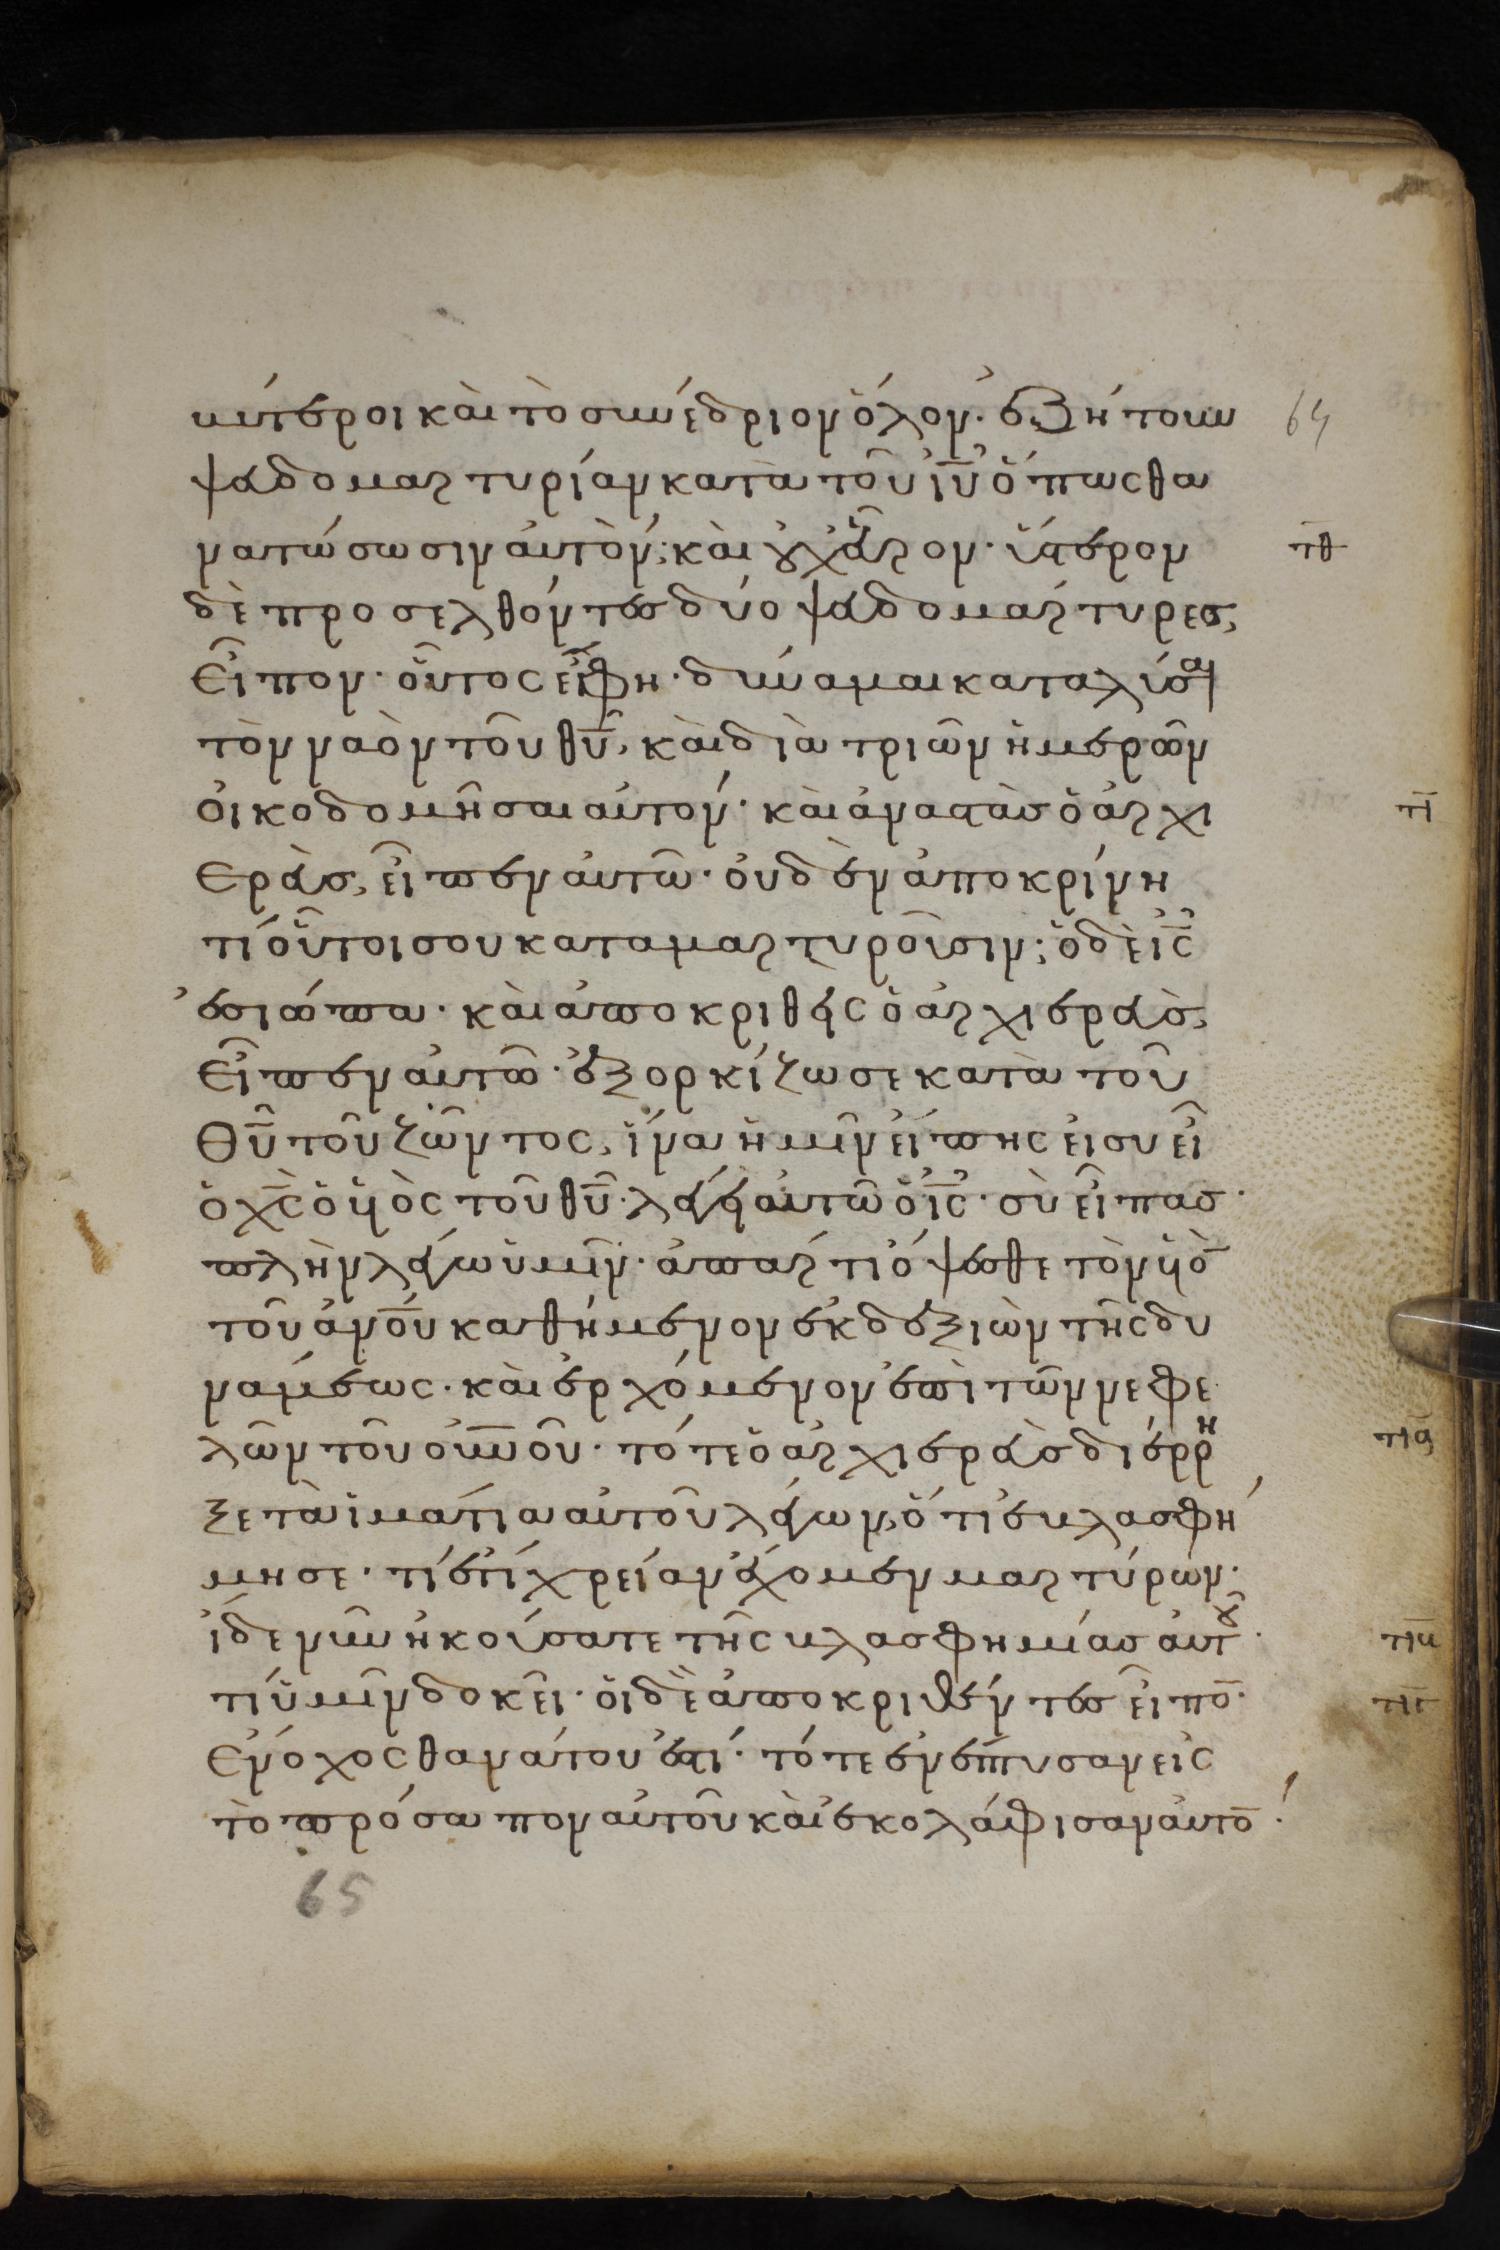 βύτεροι καὶ τὸ συνέδριον ὅλον· ἐζήτουν 64
ψευδομαρτυρίαν κατὰ τοῦ ἰῦ ὅπως θα
νατώσωσιν αὐτόν; καὶ οὐχ εὗρον· ὕστερον πθ
δὲ προσελθόντες δύο ψευδομάρτυρες,
εἶπον· οὗτος ἔφη· δύναμαι καταλῦσαι
τὸν ναὸν τοῦ θῦ, καὶ διὰ τριῶν ἡμερῶν
οἰκοδομῆσαι αὐτόν· καὶ ἀναστὰς ὁ ἀρχι π
ερεὺς, εἶπεν αὐτῶ· οὐδὲν ἀποκρίνη
τί οὗτοί σου καταμαρτυροῦσιν; ὁ δὲ ἰς
ἐσιώπα· καὶ ἀποκριθεὶς ὁ ἀρχιερεὺς,
εἶπεν αὐτῶ· ἐξορκίζω σε κατὰ τοῦ
θῦ τοῦ ζῶντος, ἵνα ἡμῖν εἴπης εἰ σὺ εἶ
ὁ χς ὁ υἱὸς τοῦ θῦ· λέγει αὐτῶ ὁ ἰς· σὺ εἶπας·
πλὴν λέγω ὑμῖν· ἀπάρτι ὄψεσθε τὸν υἱὸ
τοῦ ἀνοῦ καθήμενον ἐκ δεξιῶν τῆς δυ
νάμεως· καὶ ἐρχόμενον ἐπὶ τῶν νεφε
λῶν τοῦ οὐνοῦ· τότε ὁ ἀρχιερεὺς διέρρη πα
ξε τὰ ἱμάτια αὐτοῦ λέγων, ὅτι ἐβλασφή
μησε· τί ἔτι χρείαν ἔχομεν μαρτύρων·
ἴδε νῦν ἠκούσατε τῆς βλασφημίας αὐτοῦ· πβ
τί ὑμῖν δοκεῖ· οἱ δὲ ἀποκριθέντες εἶπο· πγ
ἔνοχος θανάτου ἐστί· τότε ἐνέπτυσαν εἰς
τὸ πρόσωπον αὐτοῦ καὶ ἐκολάφισαν αὐτό·
65